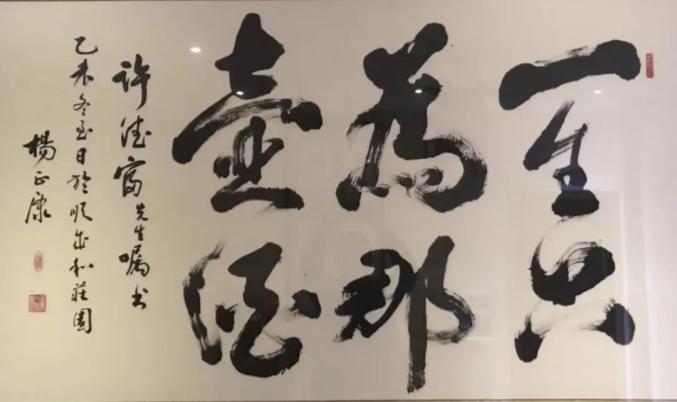 一生只
為那
壺酒
許德富先生囑書
乙未冬至日於順成和莊園
楊正康